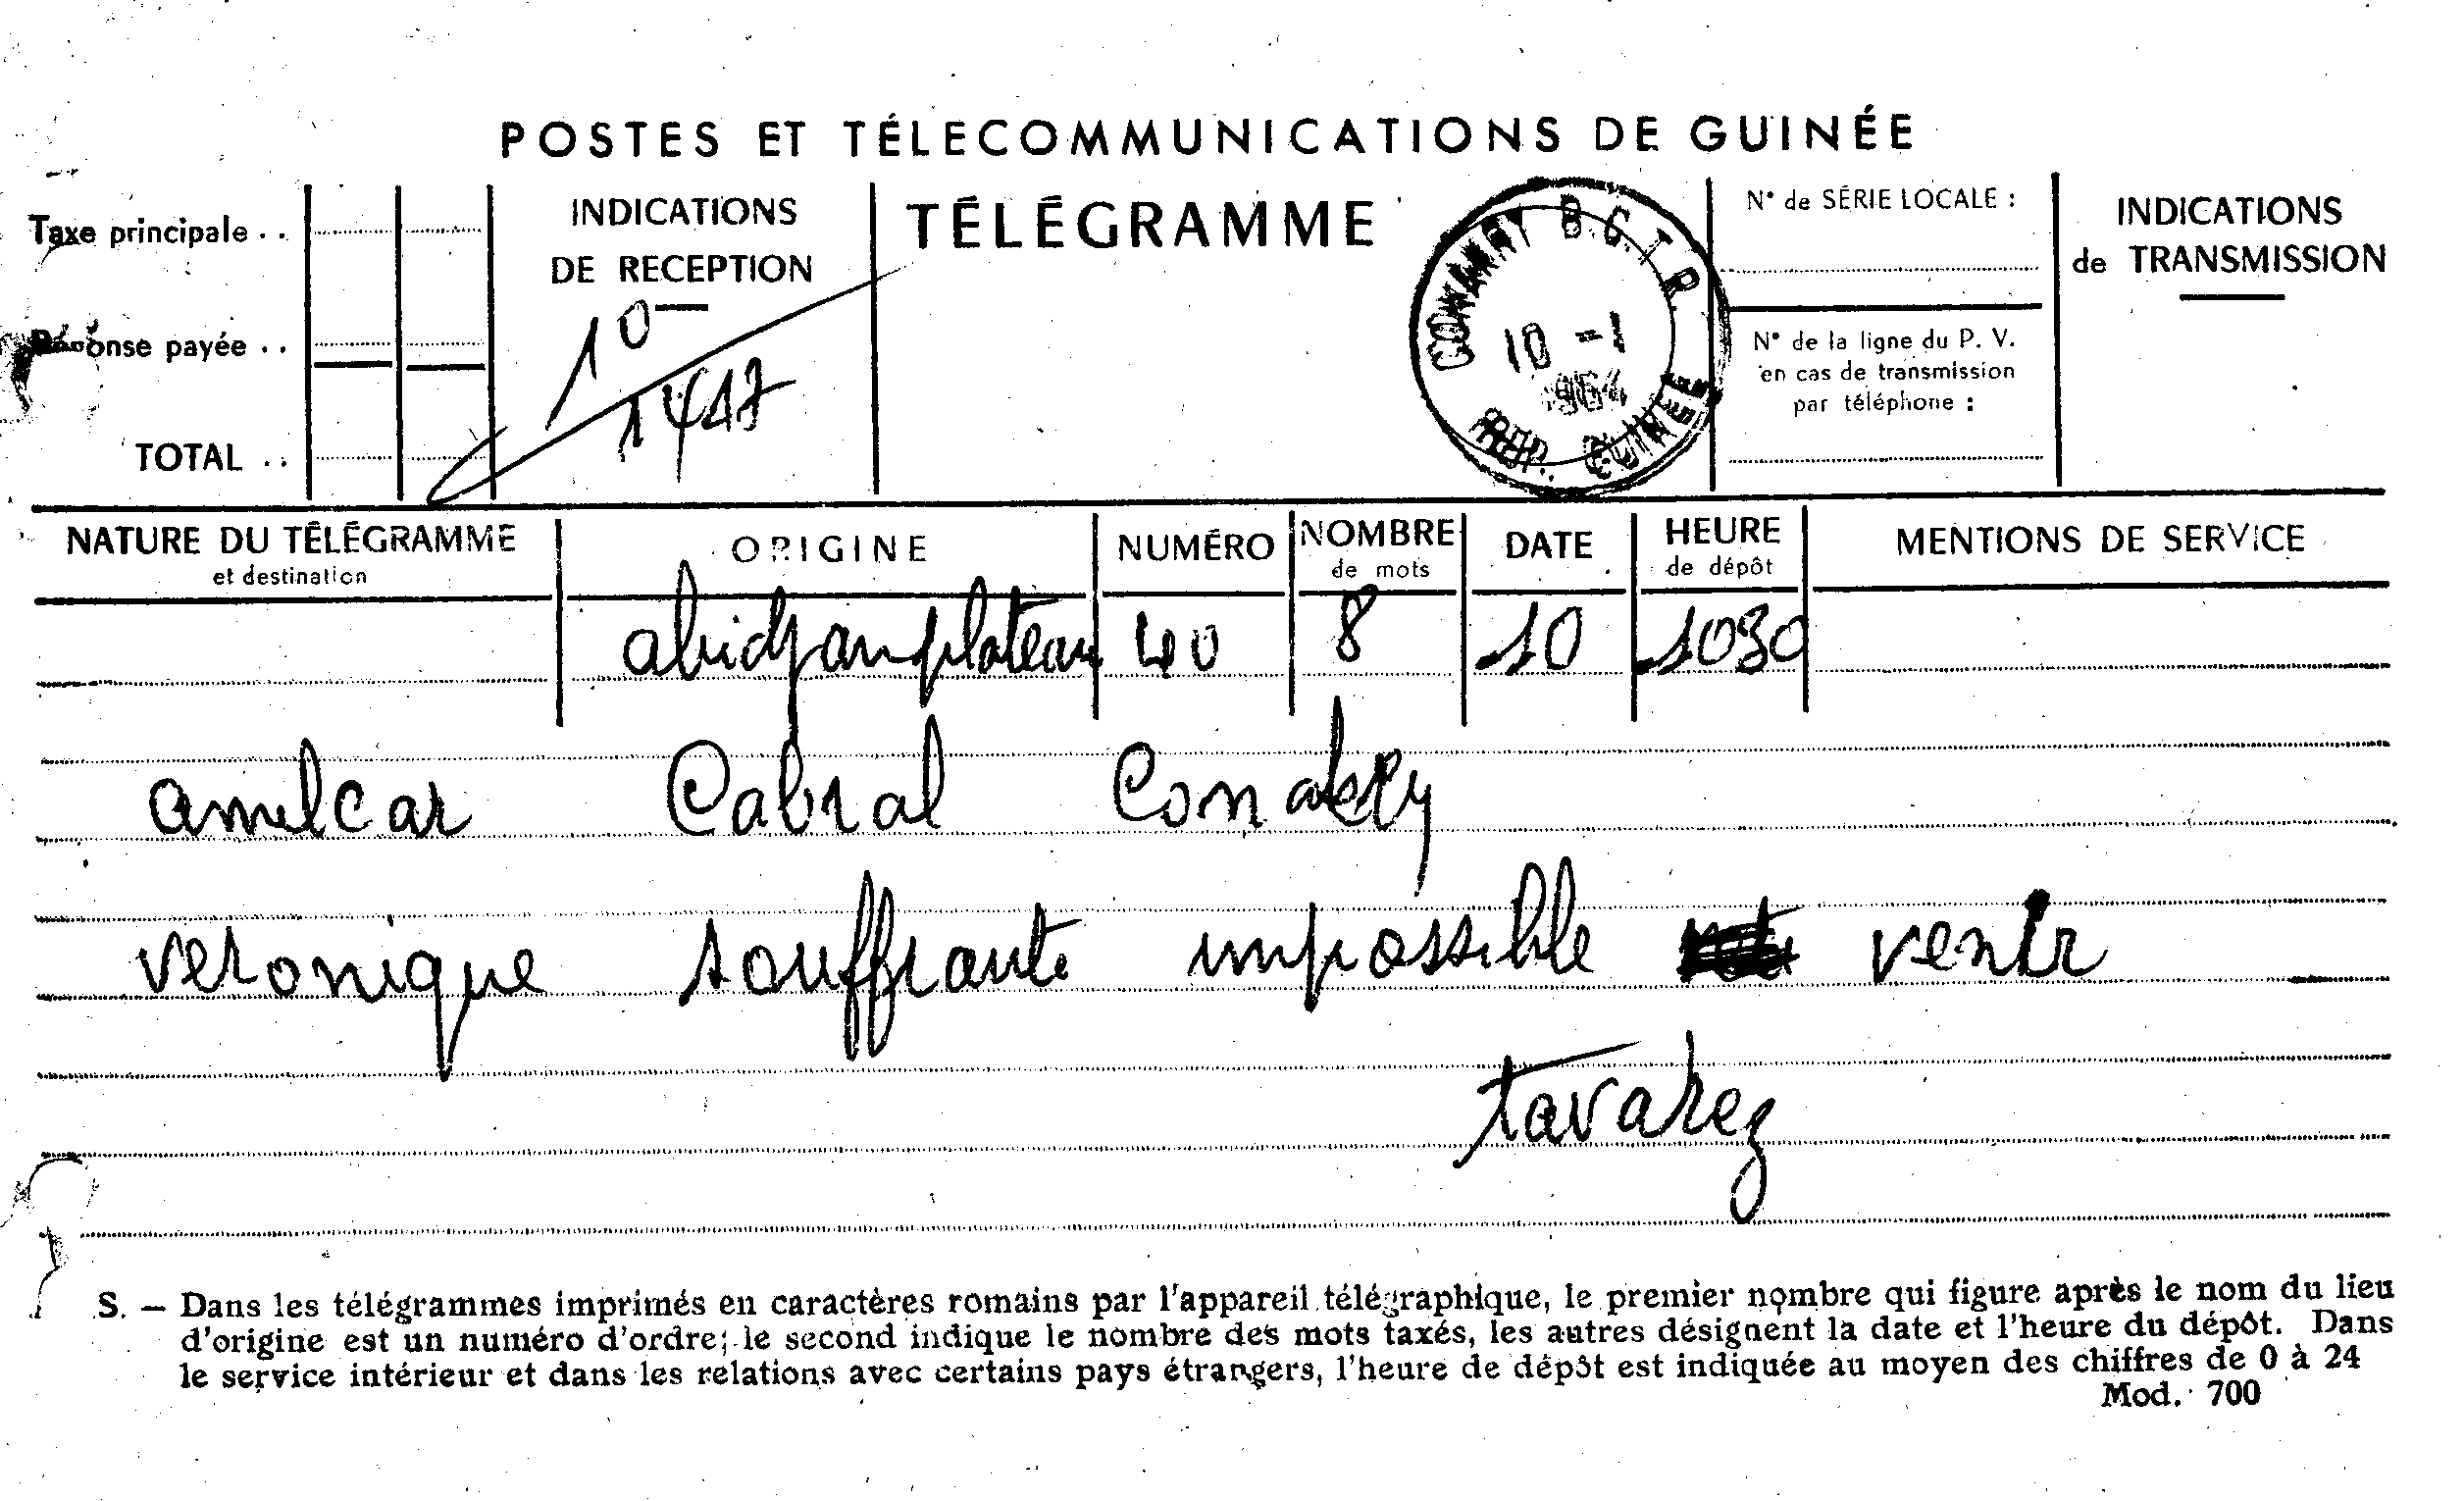 POSTES ET TÉLECOMMUNICATIONS DE GUINÉE
Taxe principale . .
Réponse payée . .
TOTAL . .
INDICATIONS
DE RECEPTION
10
1417
TÉLÉGRAMME
CONAKRY B.C.T.R.
10 -1
1964
REP. GUINEE
N° de SÉRIE LOCALE :
N° de la ligne du P. V.
en cas de transmission
par téléphone :
INDICATIONS
de TRANSMISSION
NATURE DU TÉLÉGRAMME
et destination
ORIGINE
NUMÉRO
NOMBRE
de mots
DATE
HEURE
de dépôt
MENTIONS DE SERVICE
abidjanplateau 40 8 10 1030
amelcar Cabral Conakry
veronique souffrante impossible venir
tavarez
S. — Dans les télégrammes imprimés en caractères romains par l'appareil télégraphique, le premier nombre qui figure après le nom du lieu
d'origine est un numéro d'ordre; le second indique le nombre des mots taxés, les autres désignent la date et l'heure du dépôt. Dans
le service intérieur et dans les relations avec certains pays étrangers, l'heure de dépôt est indiquée au moyen des chiffres de 0 à 24
Mod. 700